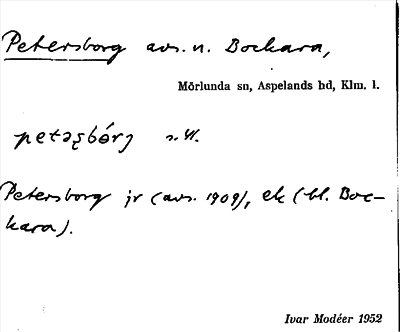 Petersborg avs. u. Bockara,
Mörlunda sn, Aspelands hd, Klm. l.
Petersborg jr (avs. 1909), ek (bl. Boc-
kara).
Ivar Modéer 1952